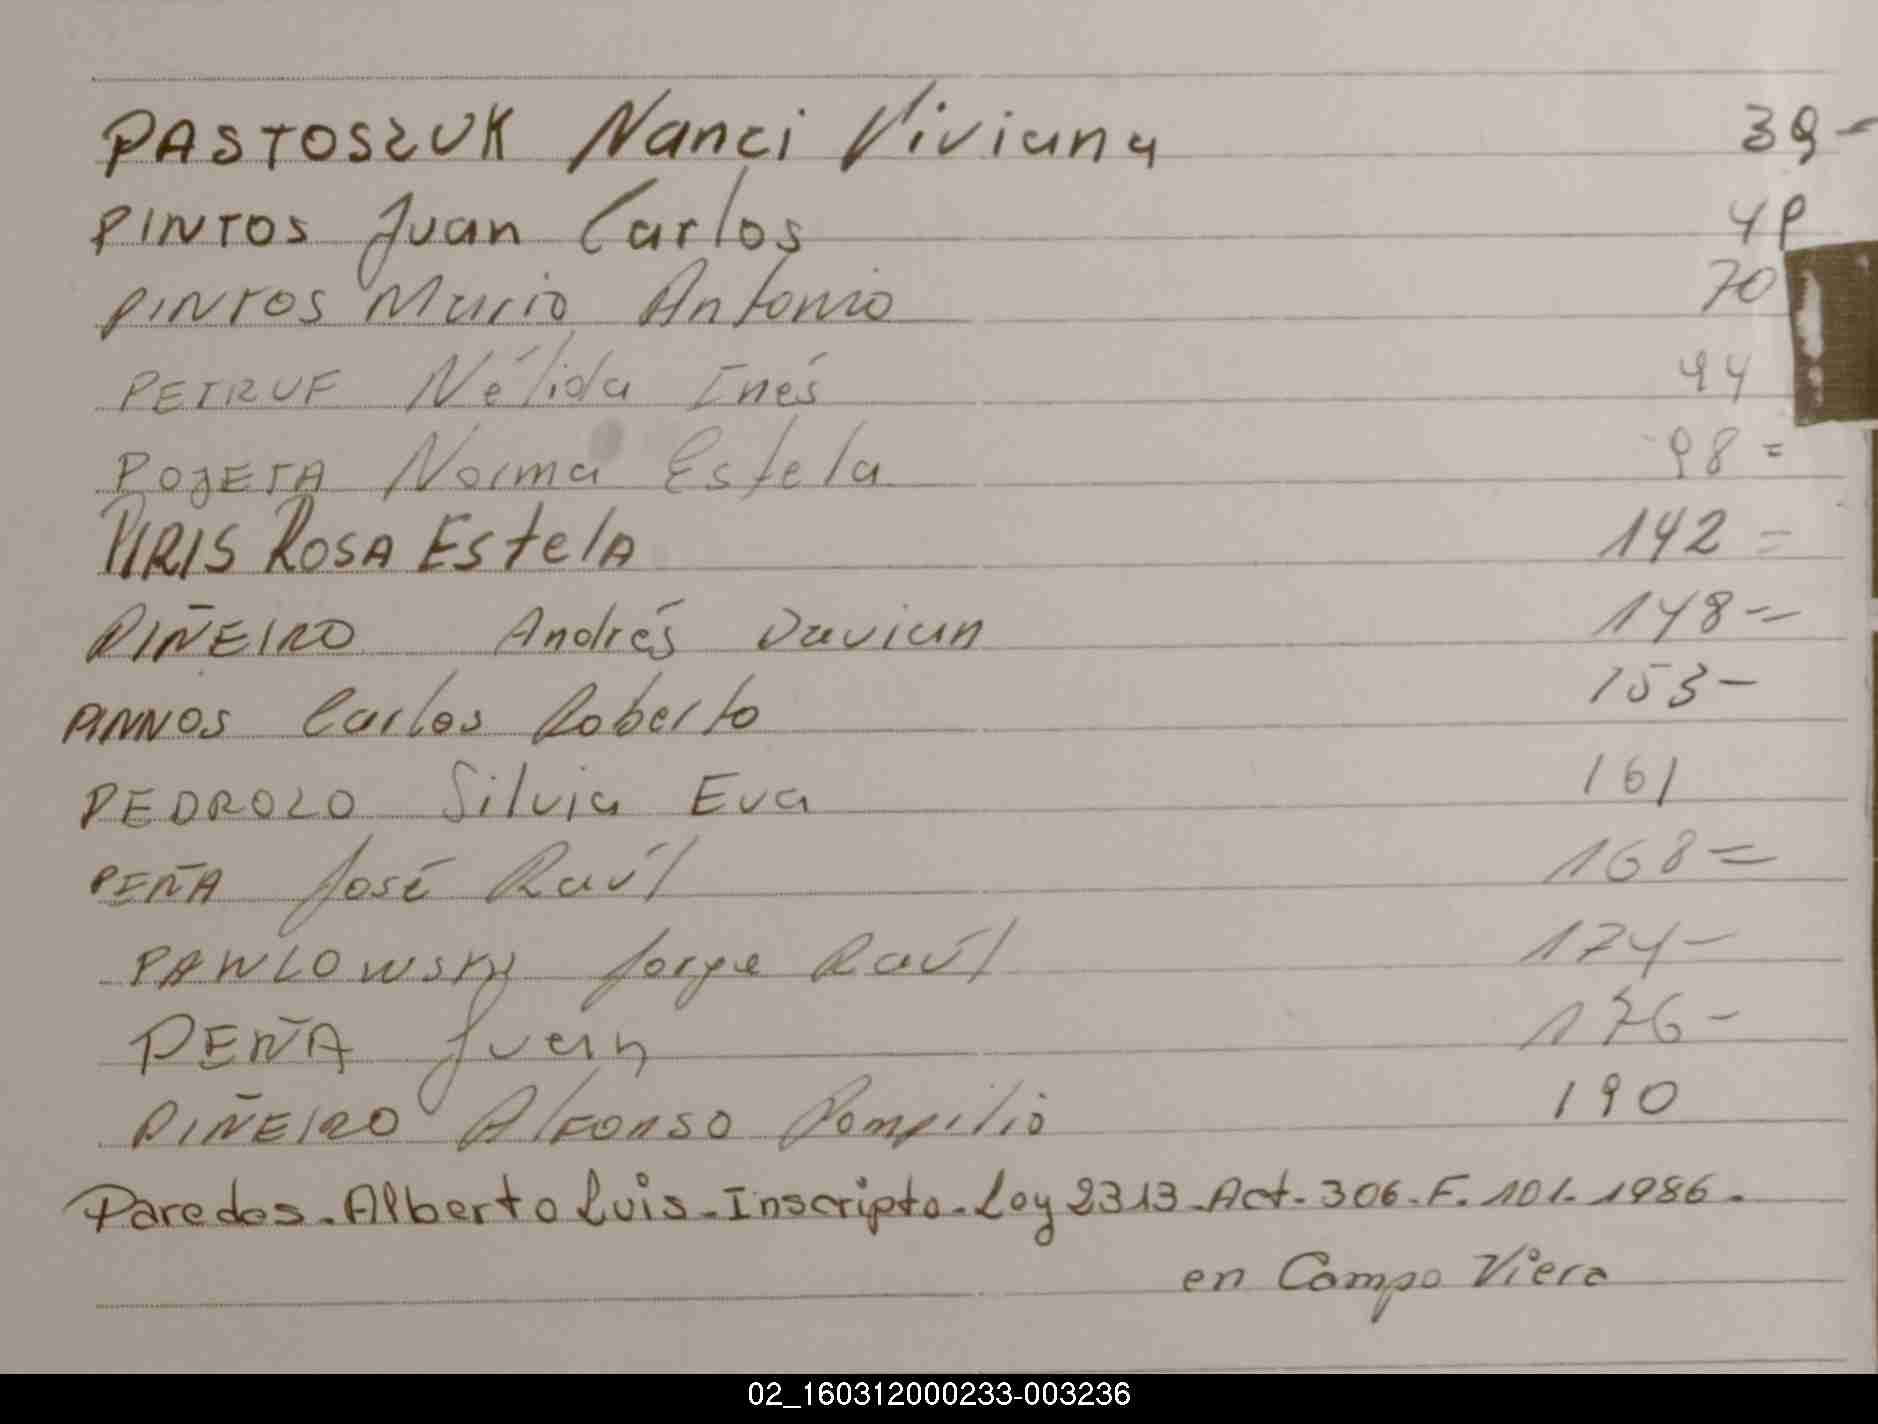 PASTOSZUK Nanci Viviana 39 -
PINTOS Juan Carlos 49
PINTOS Mario Antonio 70
PETRUF Nélida Inés 94
POJETA Norma Estela 98 =
PIRIS ROSA EStelA 142 =
PIÑEIRO Andrés Davian 148 =
PINNOS Carlos Roberto 153 -
PEDROZO Silvia Eva 161
PEÑA José Raúl 168 =
PAWLOWSKY Jorge Raúl 174 -
PEÑA Juan 176 -
PIÑEIRO Alfonso Pompilio 190
Paredes. Alberto Luis. Inscripto. Ley 2313. Act. 306. F. 101. 1986.
en Campo Viera
02_160312000233-003236